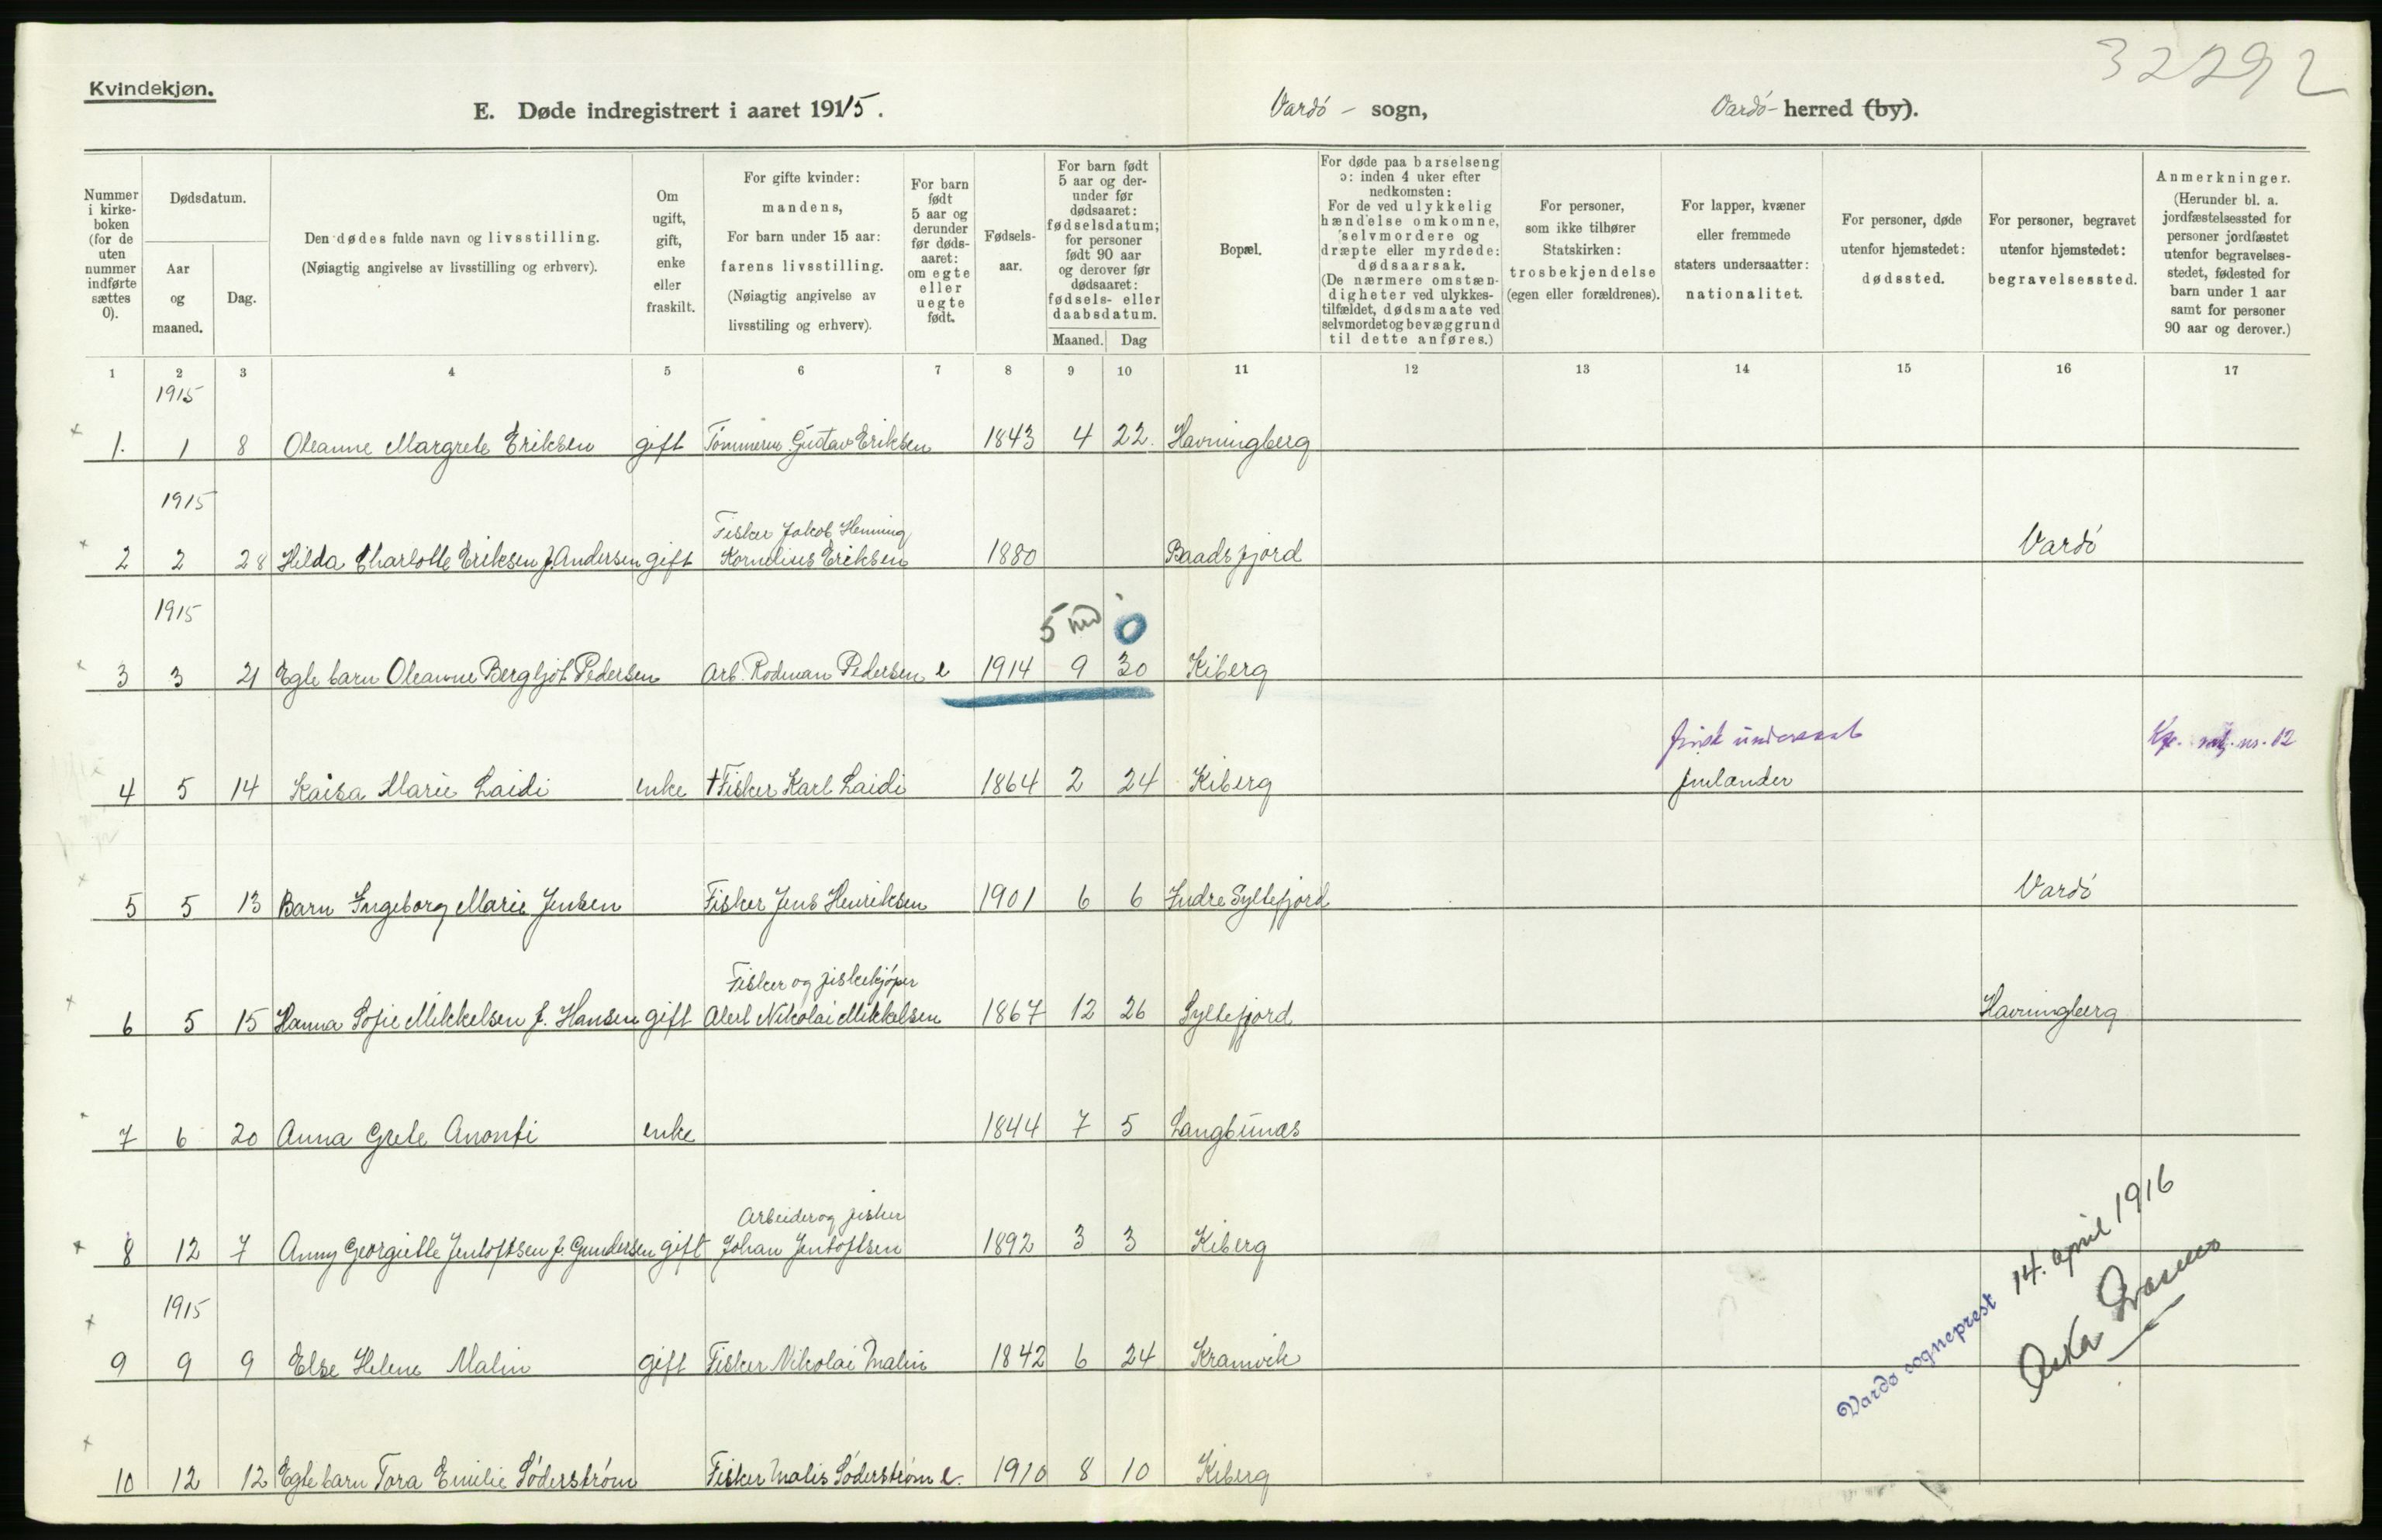 32292
Kvindekjøn.
E. Døde indregistrert i aaret 1915.
Vardö - sogn,
Vardö - herred (by).
Nummer i kirke-boken (for de uten nummer indførte sættes 0).
Dødsdatum.
Aar og maaned.
Dag.
Den dødes fulde navn og livsstilling.
(Nøiagtig angivelse av livsstilling og erhverv).
Om ugift, gift, enke eller fraskilt.
For gifte kvinder: mandens,
For barn under 15 aar: farens livsstilling.
(Nøiagtig angivelse av livsstiling og erhverv).
For barn født 5 aar og derunder før døds-aaret: om egte eller uegte født.
Fødsels-aar.
For barn født 5 aar og der-under før dødsaaret: fødselsdatum; for personer født 90 aar og derover før dødsaaret: fødsels- eller daabsdatum.
Maaned. Dag
Bopæl.
For døde paa barselseng ɔ: inden 4 uker efter nedkomsten:
For de ved ulykkelig hændelse omkomne, selvmordere og dræpte eller myrdede: dødsaarsak.
(De nærmere omstæn-digheter ved ulykkes-tilfældet, dødsmaate ved selvmordet og bevæggrund til dette anføres.)
For personer, som ikke tilhører Statskirken: trosbekjendelse (egen eller forældrenes).
For lapper, kvæner eller fremmede staters undersaatter: nationalitet.
For personer, døde utenfor hjemstedet: dødssted.
For personer, begravet utenfor hjemstedet: begravelsessted.
Anmerkninger.
(Herunder bl. a. jordfæstelsessted for personer jordfæstet utenfor begravelses-stedet, fødested for barn under 1 aar samt for personer 90 aar og derover.)
1 2 3 4 5 6 7 8 9 10 11 12 13 14 15 16 17
1915
1. 1 8 Oleanne Margrete Eriksen gift Tömmerm. Gustav Eriksen 1843 4 22. Havningberg
1915
Fisker Jakob Henning
2 2 28 Hilda Charlotte Eriksen f. Andersen gift Kornelius Eriksen 1880 Baadsfjord Vardö
1915
5 md 0
3 3 21 Egte barn Oleanne Bergljot Pedersen Arb. Rodman Pedersen e 1914 9 30 Kiberg
finsk undersaat Kp. nr. 12
4 5 14 Kaisa Marie Laidi enke †Fisker Karl Laidi 1864 2 24 Kiberg finlender
5 5 13 Barn Ingeborg Marie Jensen Fisker Jens Henriksen 1901 6 6 Indre Syltefjord Vardö
Fisker og fiskekjöper
6 5 15 Hanna Sofie Mikkelsen f. Hansen gift Alert Nikolai Mikkelsen 1867 12 26 Syltefjord Havningberg
7 6 20 Anna Grete Anonti enke 1844 7 5 Langbunæs
Arbeider og fisker
8 12 7 Anny Georgiette Jentoftsen f. Gundersen gift Johan Jentoftsen 1892 3 3 Kiberg
1915
9 9 9 Else Helene Malin gift Fisker Nikolai Malin 1842 6 24 Kramvik
10 12 12 Egte barn Tora Emilie Söderström Fisker Matis Söderström e. 1910 8 10 Kiberg
Vardø sogneprest 14. april 1916